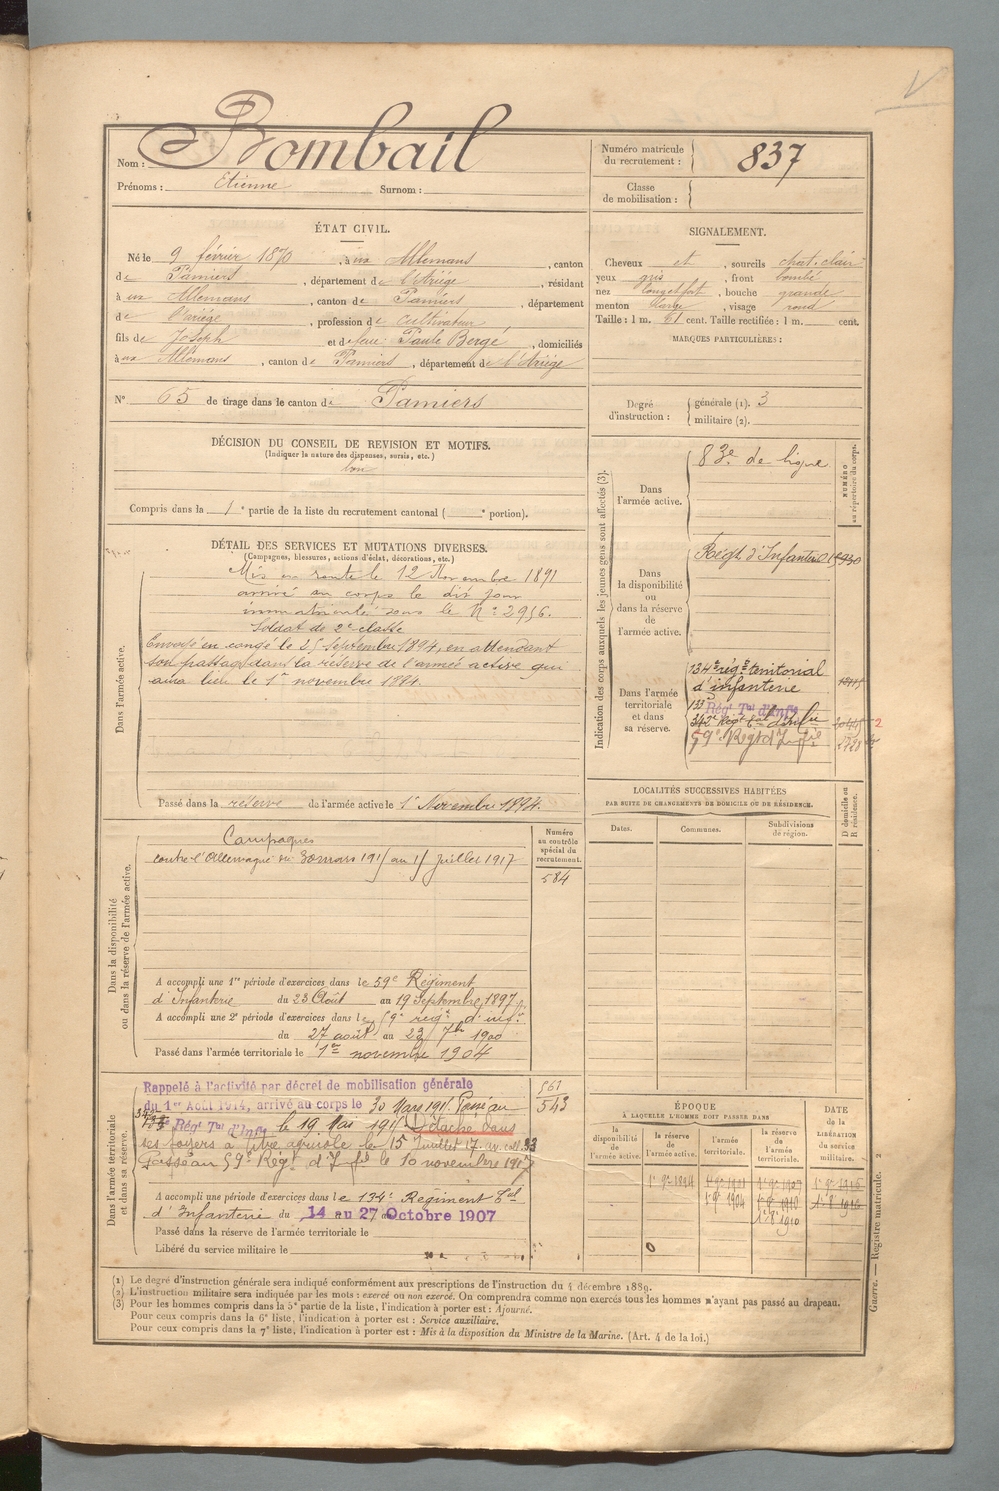 Nom : Bombail
Prénoms : Etienne Surnom :
Numéro matricule du recrutement : 837
Classe de mobilisation :
ÉTAT CIVIL.
Né le 9 février 1870, à ux Allemans, canton
de Pamiers, département de l'Ariége, résidant
à ux Allemans, canton de Pamiers, département
de l'ariége, profession de cultivateur
fils de Joseph et de feue Paule Bergé, domiciliés
à ux Allemans, canton de Pamiers, département de l'Ariége
N° 65 de tirage dans le canton de Pamiers
SIGNALEMENT.
Cheveux et, sourcils chat. clair
yeux gris, front bombé
nez long et fort, bouche grande
menton large, visage rond
Taille : 1 m. 61 cent. Taille rectifiée : 1 m. cent.
MARQUES PARTICULIÈRES :
Degré d'instruction : générale (1). 3
militaire (2).
DÉCISION DU CONSEIL DE REVISION ET MOTIFS.
(Indiquer la nature des dispenses, sursis, etc.)
bon
Compris dans la 1e partie de la liste du recrutement cantonal ( e portion).
DÉTAIL DES SERVICES ET MUTATIONS DIVERSES.
(Campagnes, blessures, actions d'éclat, décorations, etc.)
Dans l'armée active.
Mis en route le 12 Novembre 1891
arrivé au corps le dit jour
immatriculé sous le N° 2956.
Soldat de 2e classe
Envoyé en congé le 25 septembre 1894, en attendant
son passage dans la réserve de l'armée active qui
aura lieu le 1er novembre 1894.
Passé dans la réserve de l'armée active le 1er Novembre 1894.
Indication des corps auxquels les jeunes gens sont affectés (3).
NUMÉRO au répertoire du corps.
Dans l'armée active. 83e de ligne
Dans la disponibilité ou dans la réserve de l'armée active. Régt d'Infanterie
Dans l'armée territoriale et dans sa réserve.
134e régt territorial
d'infanterie
133 Régt Tal d'Infie
342e Régt tal d'infie
59e Regt d'Infie
Dans la disponibilité ou dans la réserve de l'armée active.
Campagnes
contre l'Allemagne du 30 mars 1915 au 15 juillet 1917
Numéro au contrôle spécial du recrutement.
584
A accompli une 1re période d'exercices dans le 59e Régiment
d'Infanterie du 23 Août au 19 Septembre 1897
A accompli une 2e période d'exercices dans le 59e regt d'inft
du 27 août au 23 7bre 1900
Passé dans l'armée territoriale le 1er novembre 1904
LOCALITÉS SUCCESSIVES HABITÉES
PAR SUITE DE CHANGEMENTS DE DOMICILE OU DE RÉSIDENCE.
Dates. Communes. Subdivisions de région. D domicile ou R résidence.
Dans l'armée territoriale et dans sa réserve.
Rappelé à l'activité par décret de mobilisation générale
du 1er Août 1914, arrivé au corps le 30 Mars 1915. Passé au
Régt Tal d'Infie le 19 Mai 1915 Détaché dans
ses foyers à titre agricole le 15 Juillet 17.
Passé au 59e Régt d'Infie le 10 novembre 1917
561
543
A accompli une période d'exercices dans le 134e Régiment tal
d'Infanterie du 14 au 27 Octobre 1907
Passé dans la réserve de l'armée territoriale le
Libéré du service militaire le
ÉPOQUE
À LAQUELLE L'HOMME DOIT PASSER DANS
la disponibilité de l'armée active.
la réserve de l'armée active.
l'armée territoriale.
la réserve de l'armée territoriale.
DATE de la LIBÉRATION du service militaire.
1er 9bre 1894
1er 9bre 1904 1er 9bre 1910 1er 8 1916
1er 8 1910
(1) Le degré d'instruction générale sera indiqué conformément aux prescriptions de l'instruction du 4 décembre 1889.
(2) L'instruction militaire sera indiquée par les mots : exercé ou non exercé. On comprendra comme non exercés tous les hommes n'ayant pas passé au drapeau.
(3) Pour les hommes compris dans la 5e partie de la liste, l'indication à porter est : Ajourné.
Pour ceux compris dans la 6e liste, l'indication à porter est : Service auxiliaire.
Pour ceux compris dans la 7e liste, l'indication à porter est : Mis à la disposition du Ministre de la Marine. (Art. 4 de la loi.)
Guerre. — Registre matricule. 2